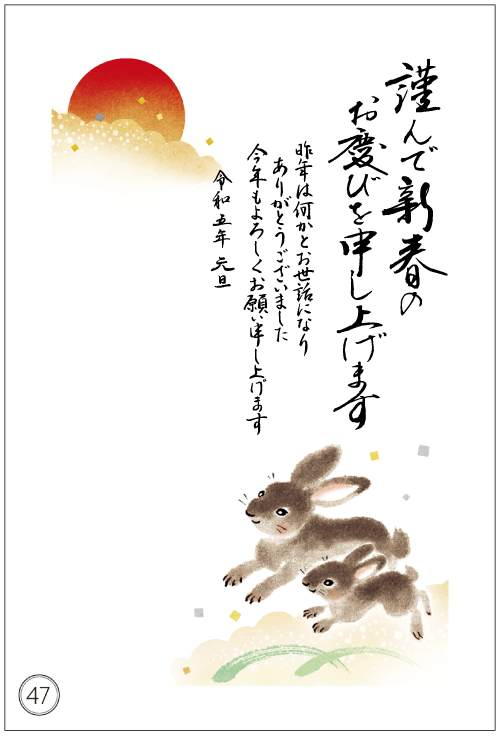 謹んで新春の
お慶びを申し上げます
昨年は何かとお世話になり
ありがとうございました
今年もよろしくお願い申し上げます
令和五年 元旦
47